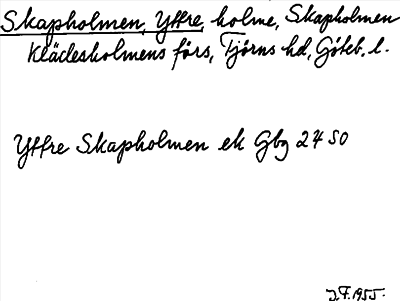 Skapholmen, Yttre, holme, Skapholmen
Klädesholmens förs, Tjörns hd, Göteb. l.
Yttre Skapholmen ek Gbg 24 SO
J.F. 1955.